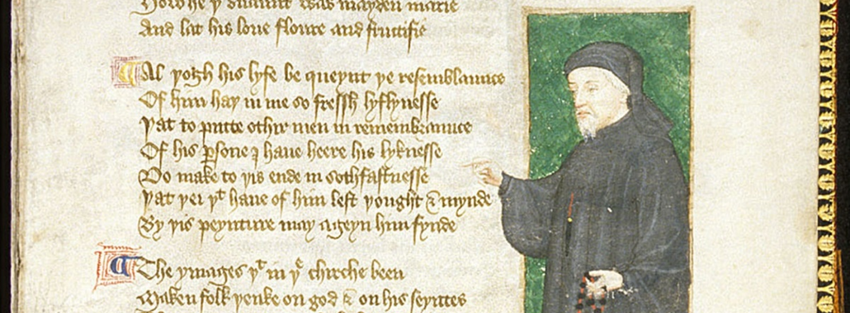 And lat his loue floure and fructifie
Al þogh his lyfe be queynt þe resemblaunce
Of him haþ in me so fressh lyflynesse
Þat to putte othir men in remembraunce
Of his persone I haue heere his lyknesse
Do make to þis ende in sothfastnesse
Þat þei þt haue of him lest þought & mynde
By þis peynture may ageyn him fynde
The ymages þt in þe chirche been
Maken folk þenke on god & on his seyntes